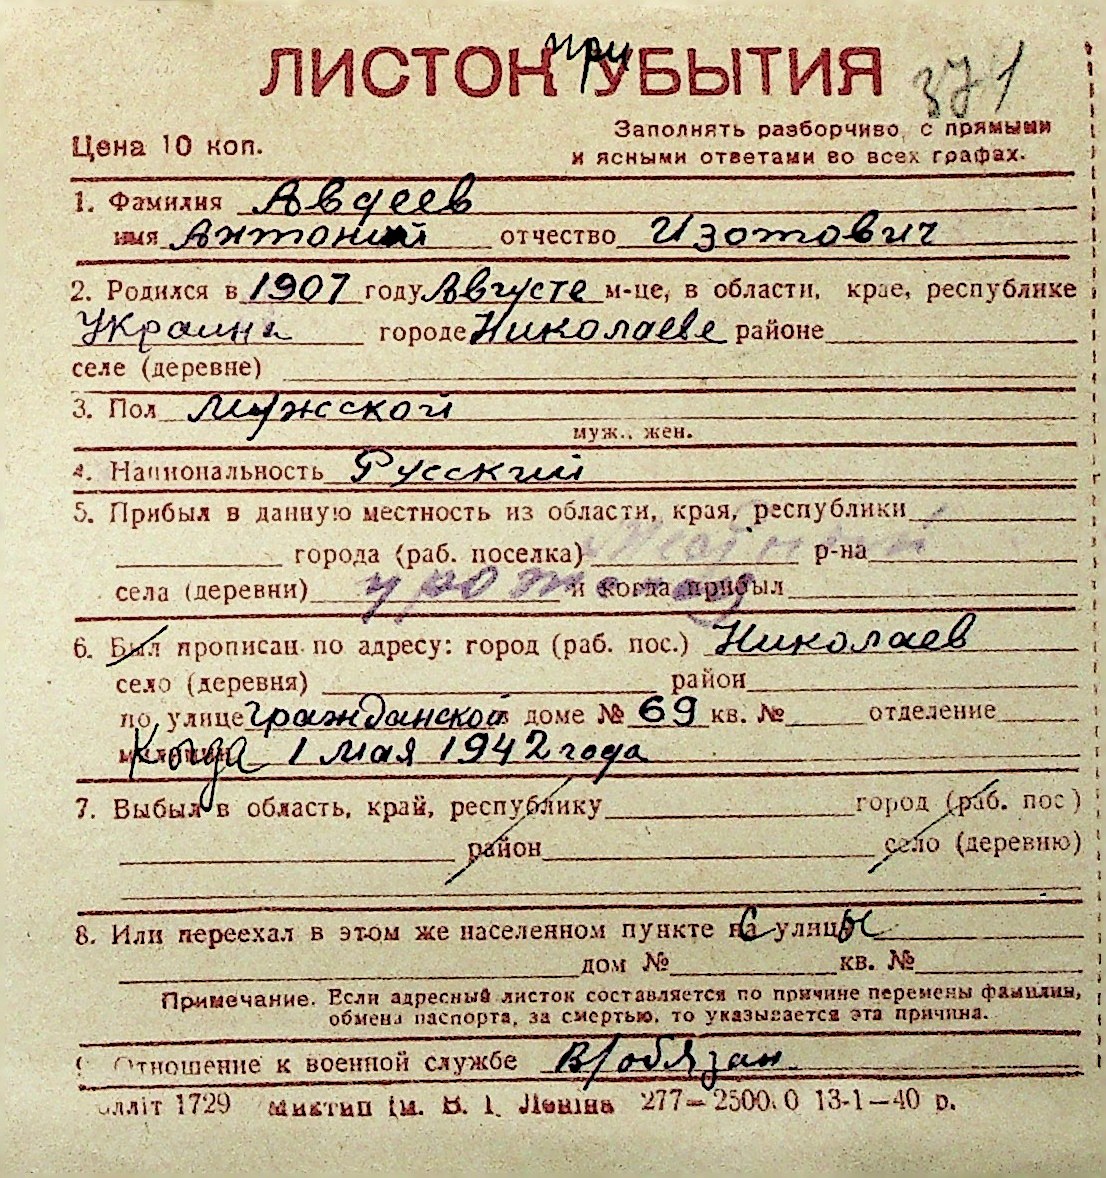 ЛИСТОК при УБЫТИЯ 371
Заполнять разборчиво, с прямыми
Цена 10 коп. и ясными ответами во всех графах.
1. Фамилия Авдеев
имя Антоний отчество Изотович
2. Родился в 1907 году Августе м-це, в области, крае, республике
Украина городе Николаеве районе
селе (деревне)
3. Пол Мужской
муж., жен.
4. Национальность Русский
5. Прибыл в данную местность из области, края, республики
города (раб. поселка) р-на
села (деревни) уроженец и когда прибыл
6. Был прописан по адресу: город (раб. пос.) Николаев
село (деревня) район
по улице Гражданской в доме № 69 кв. № отделение
милиции Когда 1 мая 1942 года
7. Выбыл в область, край, республику город (раб. пос.)
район село (деревню)
8. Или переехал в этом же населенном пункте на с улицы
дом № кв. №
Примечание. Если адресный листок составляется по причине перемены фамилии,
обмена паспорта, за смертью, то указывается эта причина.
9. Отношение к военной службе В/обязан
ллiт 1729 Миктип iм. В. I. Ленiна 277—2500.0 13-1—40 р.